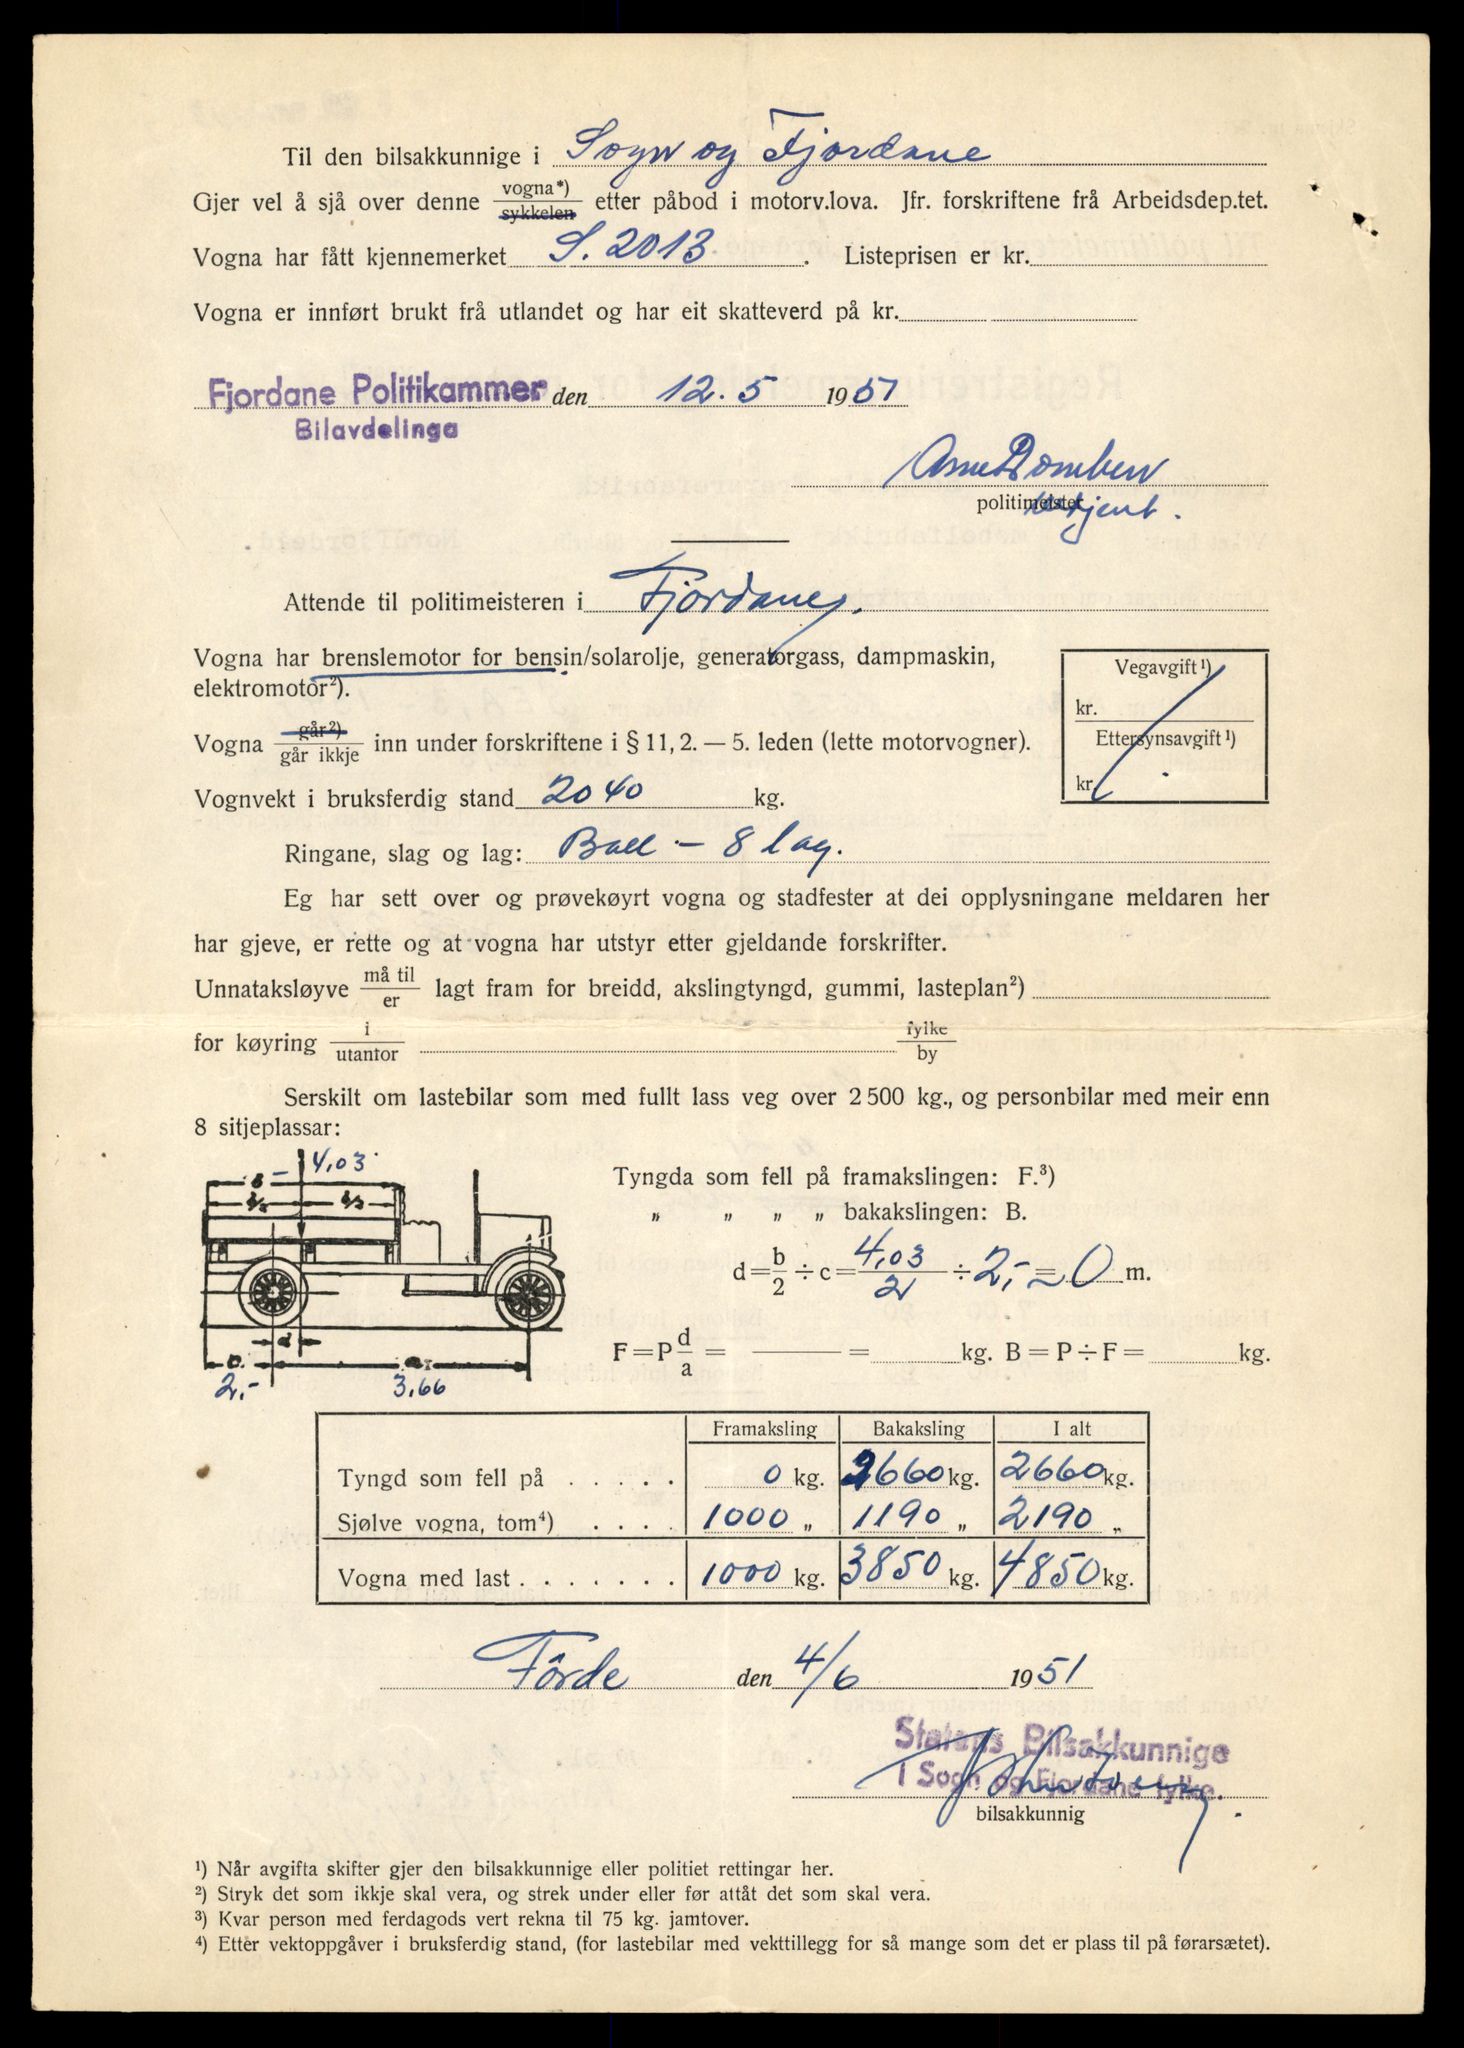 Til den bilsakkunnige i Sogn og Fjordane
Gjer vel å sjå over denne vogna*) / sykkelen etter påbod i motorv.lova. Jfr. forskriftene frå Arbeidsdep.tet.
Vogna har fått kjennemerket S. 2013. Listeprisen er kr.
Vogna er innført brukt frå utlandet og har eit skatteverd på kr.
Fjordane Politikammer den 12.5 1951
Bilavdelinga
politimeister
Attende til politimeisteren i Fjordane.
Vogna har brenslemotor for bensin/solarolje, generatorgass, dampmaskin,
elektromotor²).
Vegavgift¹)
kr.
Ettersynsavgift¹)
kr.
Vogna går²) / går ikkje inn under forskriftene i § 11, 2. — 5. leden (lette motorvogner).
Vognvekt i bruksferdig stand 2040 kg.
Ringane, slag og lag: Ball – 8 lag.
Eg har sett over og prøvekøyrt vogna og stadfester at dei opplysningane meldaren her
har gjeve, er rette og at vogna har utstyr etter gjeldande forskrifter.
Unnataksløyve må til / er lagt fram for breidd, akslingtyngd, gummi, lasteplan²)
for køyring i / utantor fylke / by
Serskilt om lastebilar som med fullt lass veg over 2 500 kg., og personbilar med meir enn
8 sitjeplassar:
4,03
Tyngda som fell på framakslingen: F.³)
„ „ „ „ bakakslingen: B.
d = b/2 ÷ c = 4,03/2 ÷ 2,- = ~ 0 m.
F = P d/a = = kg. B = P ÷ F = kg.
d
2,- 3,66
Framaksling Bakaksling I alt
Tyngd som fell på . . . . . 0 kg. 2660 kg. 2660 kg.
Sjølve vogna, tom⁴) . . . . 1000 „ 1190 „ 2190 „
Vogna med last . . . . . . . 1000 kg. 3850 kg. 4850 kg.
Förde den 4/6 1951
Statens Bilsakkunnige
i Sogn og Fjordane fylke.
bilsakkunnig
¹) Når avgifta skifter gjer den bilsakkunnige eller politiet rettingar her.
²) Stryk det som ikkje skal vera, og strek under eller før attåt det som skal vera.
³) Kvar person med ferdagods vert rekna til 75 kg. jamtover.
⁴) Etter vektoppgåver i bruksferdig stand, (for lastebilar med vekttillegg for så mange som det er plass til på førarsætet).